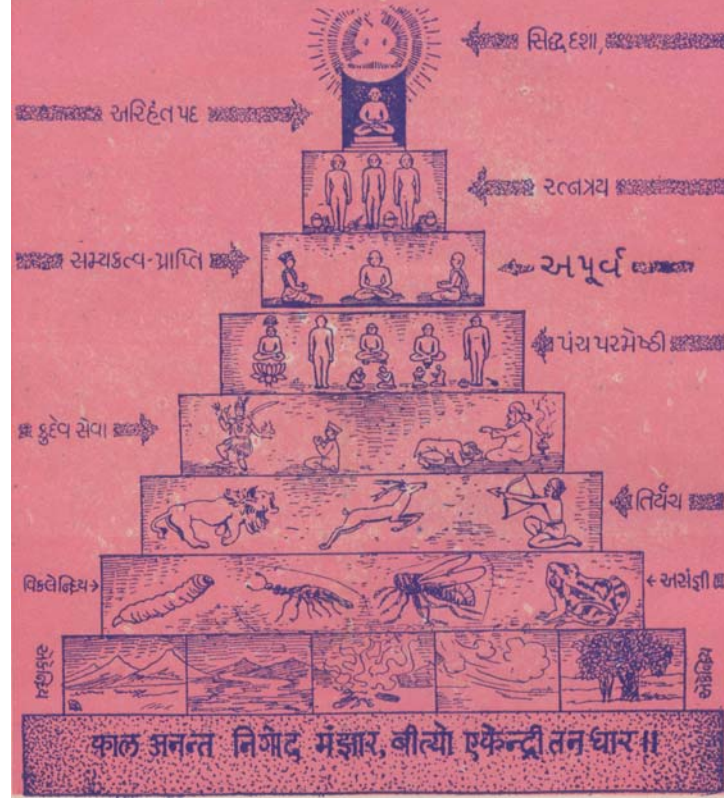 સિદ્ધ દશા,
અરિહંત પદ
રત્નત્રય
સમ્યક્ત્વ-પ્રાપ્તિ
અપૂર્વ
પંચ પરમેષ્ઠી
કુદેવ સેવા
તિર્યંચ
વિકલેન્દ્રિય
અસંજ્ઞી
એકેન્દ્રિય
काल अनन्त निगोद मंझार, बीत्यो एकेन्द्री तन धार॥